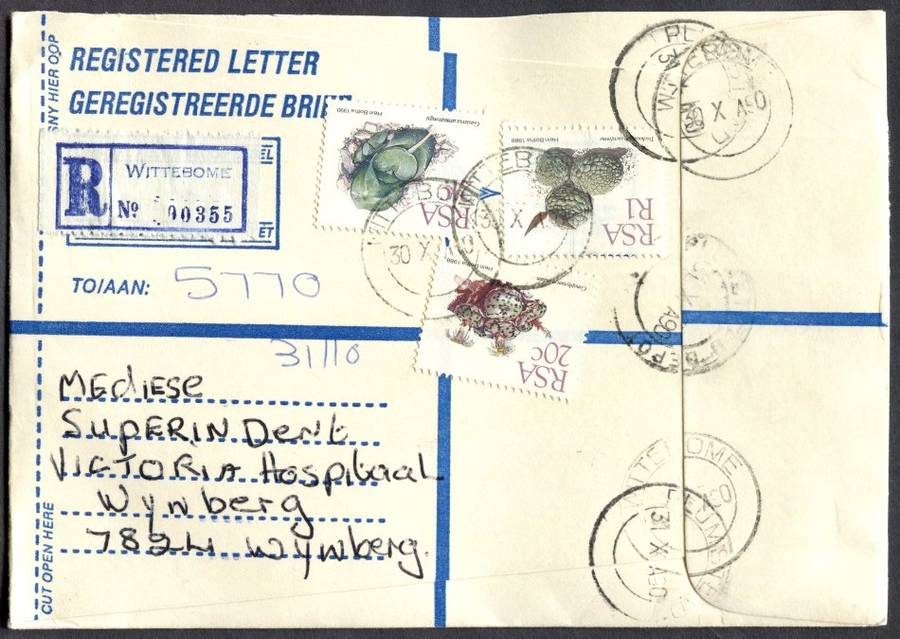 SNY HIER OOP
REGISTERED LETTER
GEREGISTREERDE BRIEF
R
WITTEBOME
No 00355
EL
ET
TO/AAN: 5770
31/10
MEdIESE
SupeRINDent
VICTORIA Hospitaal
Wynberg
7824 Wynberg.
CUT OPEN HERE
Hein Botha 1988
RSA
Hein Botha 1988
RSA
R1
Hein Botha 1988
RSA
20c
30 X
WITTEBOME
31 X A90